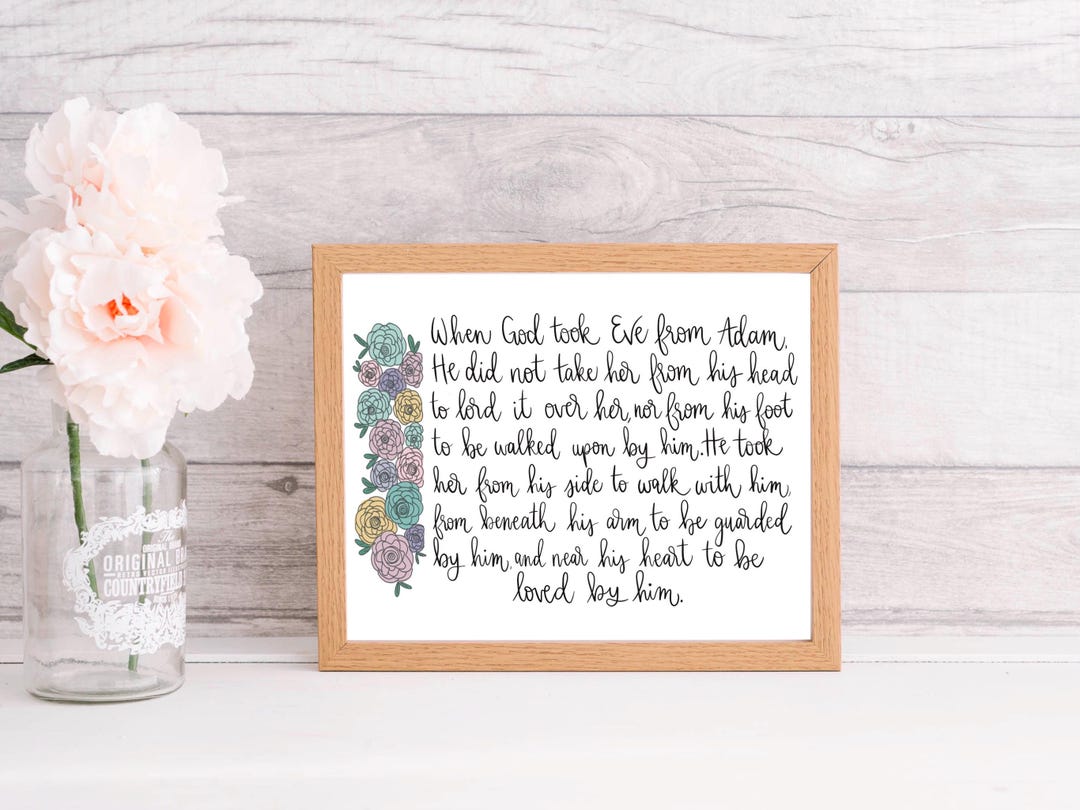 When God took Eve from Adam,
He did not take her from his head
to lord it over her, nor from his foot
to be walked upon by him. He took
her from his side to walk with him,
from beneath his arm to be guarded
by him, and near his heart to be
loved by him.
The
ORIGINAL
COUNTRYFIELD